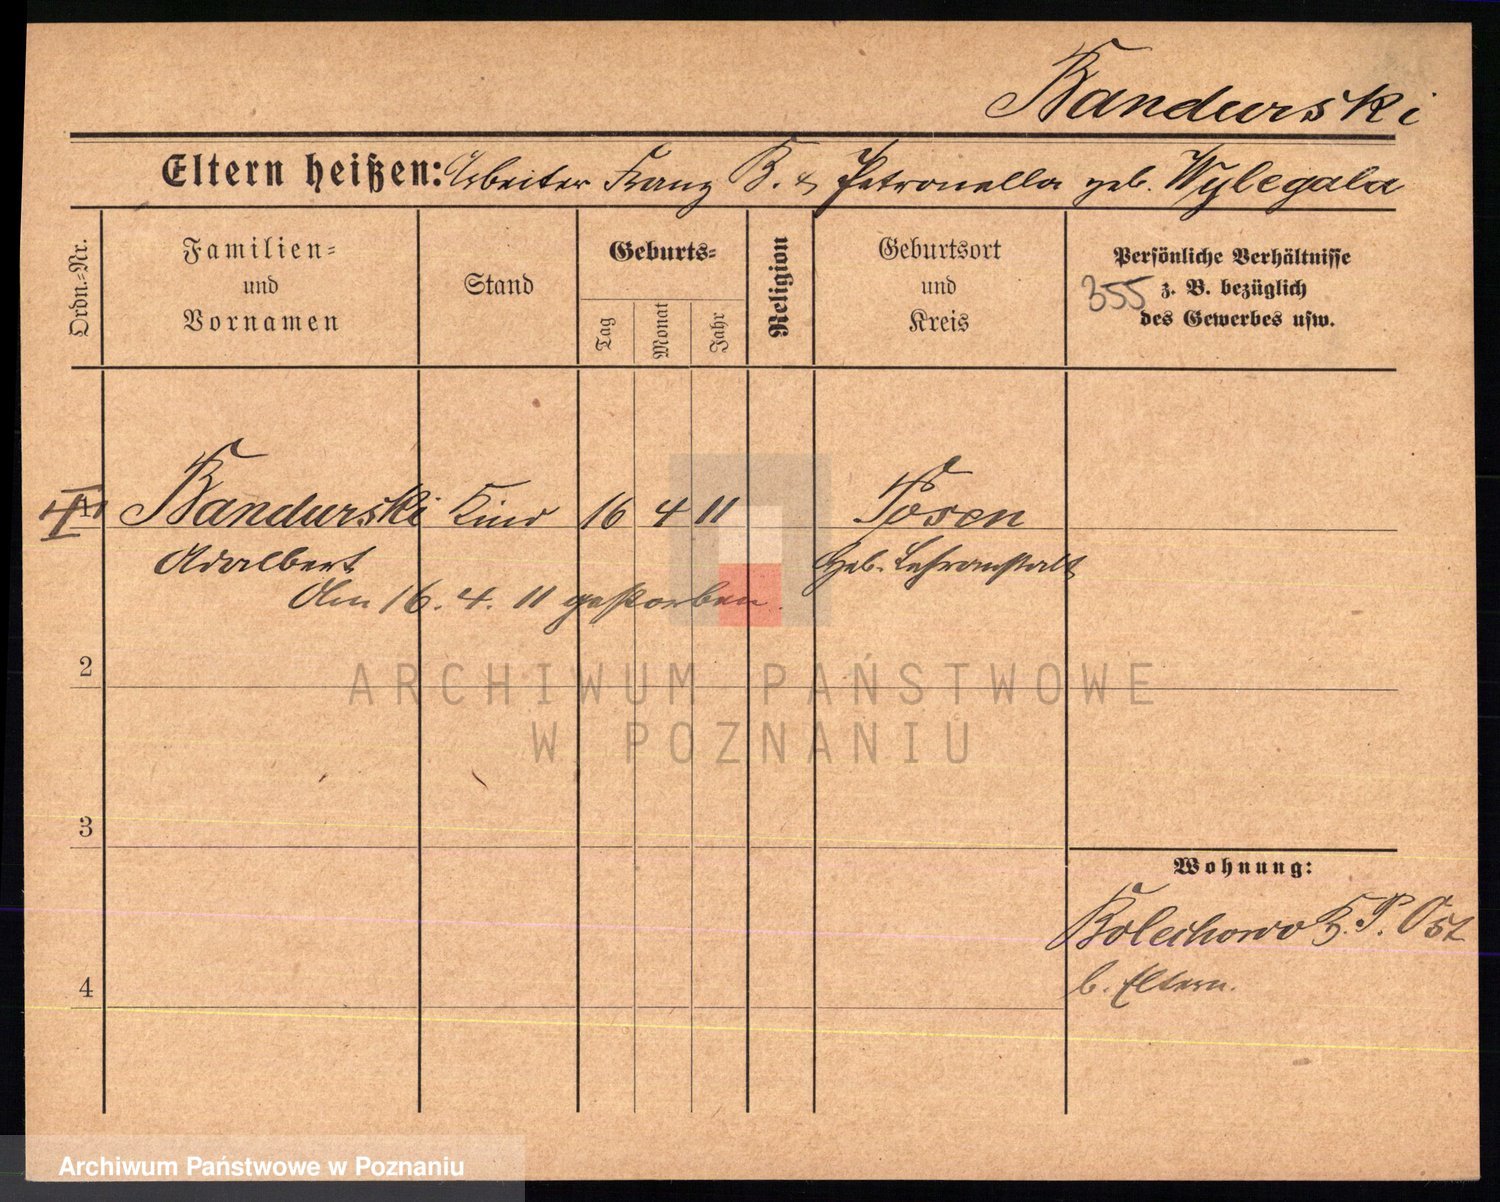 Bandurski
Eltern heißen: Arbeiter Franz B. & Petronella geb. Wylegala
Ordn.-Nr.
Familien-
und
Vornamen
Stand
Geburts-
Tag
Monat
Jahr
Religion
Geburtsort
und
Kreis
Persönliche Verhältnisse
355 z. B. bezüglich
des Gewerbes usw.
Bandurski Kind 16 4 11 Posen
Adalbert Heb. Lehranstalt
Am 16. 4. 11 gestorben.
2
ARCHIWUM PAŃSTWOWE
W POZNANIU
3
Wohnung:
Bolechowo K. P. Ost
4
b. Eltern.
Archiwum Państwowe w Poznaniu